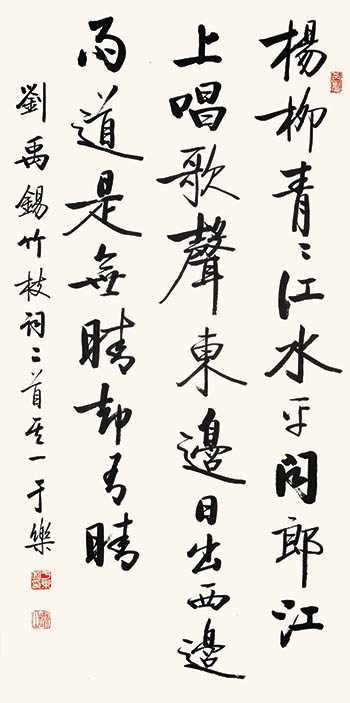 楊柳青〻江水平聞郎江
上唱歌聲東邊日出西邊
雨道是無晴却有晴
劉禹錫竹枝詞二首其一于樂